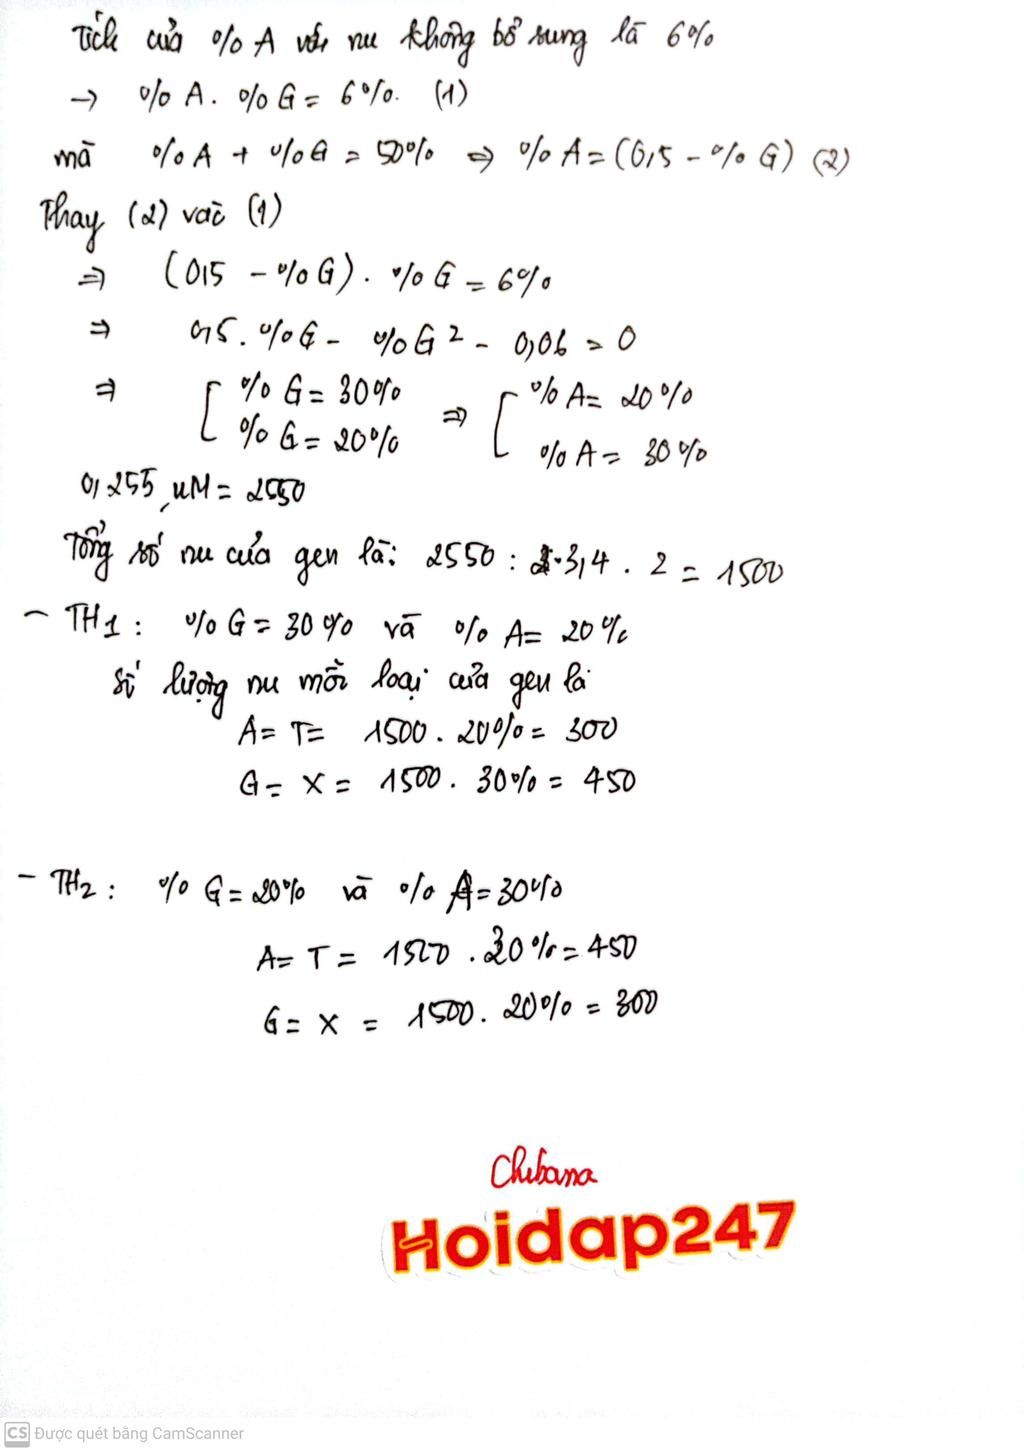 Tích của % A với nu không bổ sung là 6%
→ % A . % G = 6%. (1)
mà % A + % G = 50% ⇒ % A = (0,5 - % G) (2)
Thay (2) vào (1)
⇒ (0,5 - % G) . % G = 6%
⇒ 0,5 . % G - % G² - 0,06 = 0
⇒ [ % G = 30% ⇒ [ % A = 20%
% G = 20% % A = 30%
0,255 µM = 2550
Tổng số nu của gen là: 2550 : 3,4 . 2 = 1500
- TH1: % G = 30% và % A = 20%
Số lượng nu mỗi loại của gen là
A = T = 1500 . 20% = 300
G = X = 1500 . 30% = 450
- TH2: % G = 20% và % A = 30%
A = T = 1500 . 30% = 450
G = X = 1500 . 20% = 300
Chibana
Hoidap247
CS Được quét bằng CamScanner